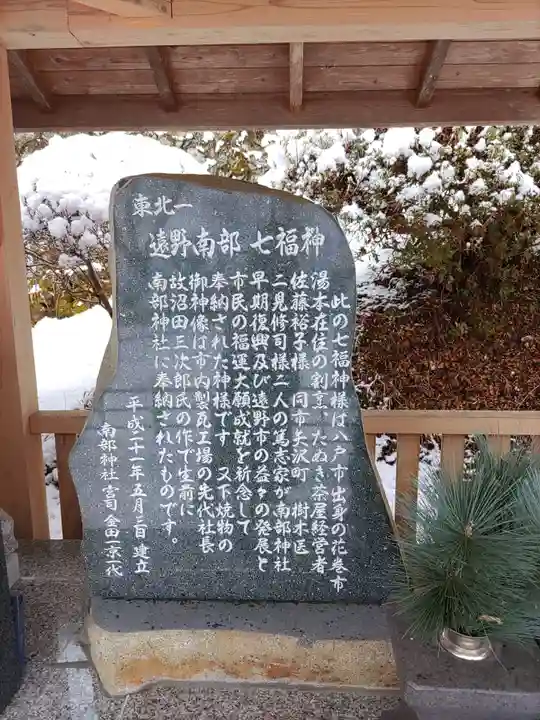 東北一
遠野南部七福神
此の七福神様は八戸市出身の花巻市
湯本在住の割烹、たぬき茶屋経営者
佐藤裕子様、同市矢沢町 樹木医
二見修司様二人の篤志家が南部神社
早期復興及び遠野市の益々の発展と
市民の福運大願成就を祈念して
奉納された神様です 又下焼物の
御神像は市内製瓦工場の先代社長
故沼田三次郎氏の作で生前に
南部神社に奉納されたものです。
平成二十一年五月三日建立
南部神社宮司